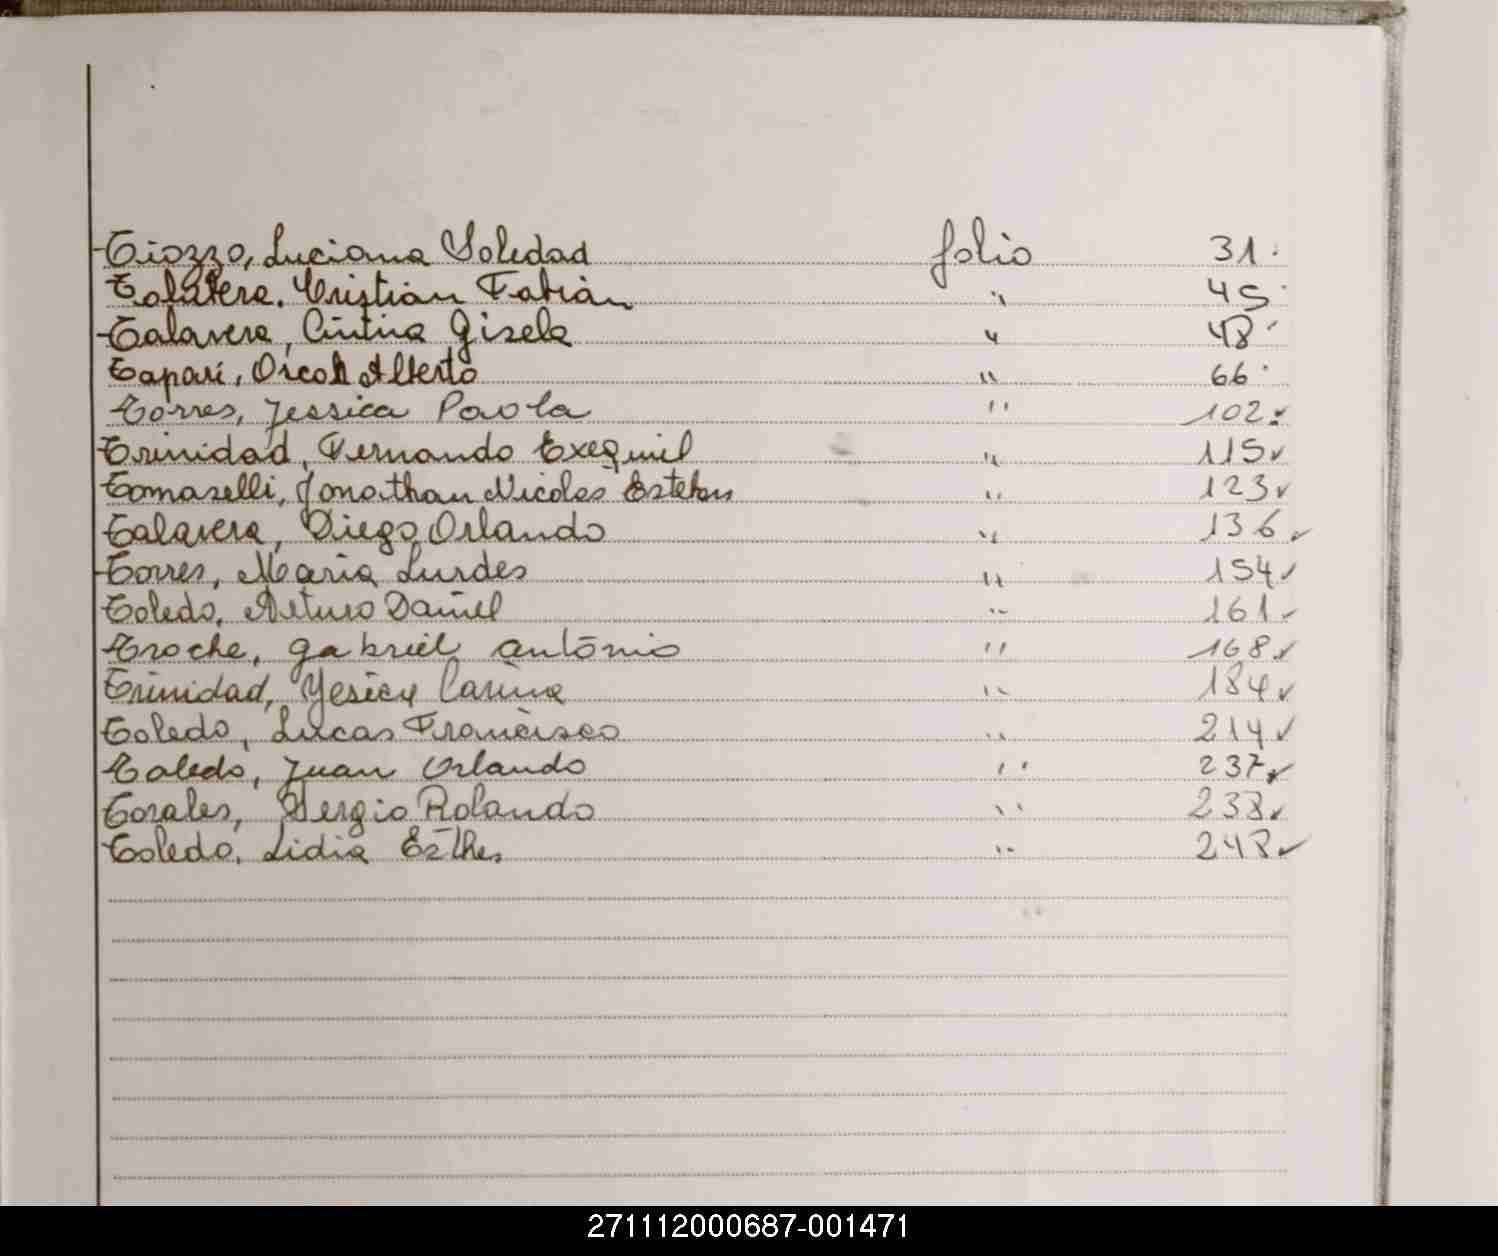 Tiozzo, Luciana Soledad folio 31.
Talavera. Cristian Fabián " 45
Talavera, Cintia Gisela " 48
Tapari, Oscar Alberto " 66
Torres, Jessica Paola " 102
Trinidad, Fernando Exequiel " 115✓
Tomaselli, Jonathan Nicolas Esteban " 123✓
Talavera, Diego Orlando " 136✓
Torres, Maria Lurdes " 154✓
Toledo, Arturo Daniel " 161✓
Troche, Gabriel António " 168✓
Trinidad, Yesica Carina " 184✓
Toledo, Lucas Francisco " 214✓
Toledo, Juan Orlando " 237✓
Torales, Sergio Rolando " 238✓
Toledo, Lidia Esther " 248✓
271112000687-001471